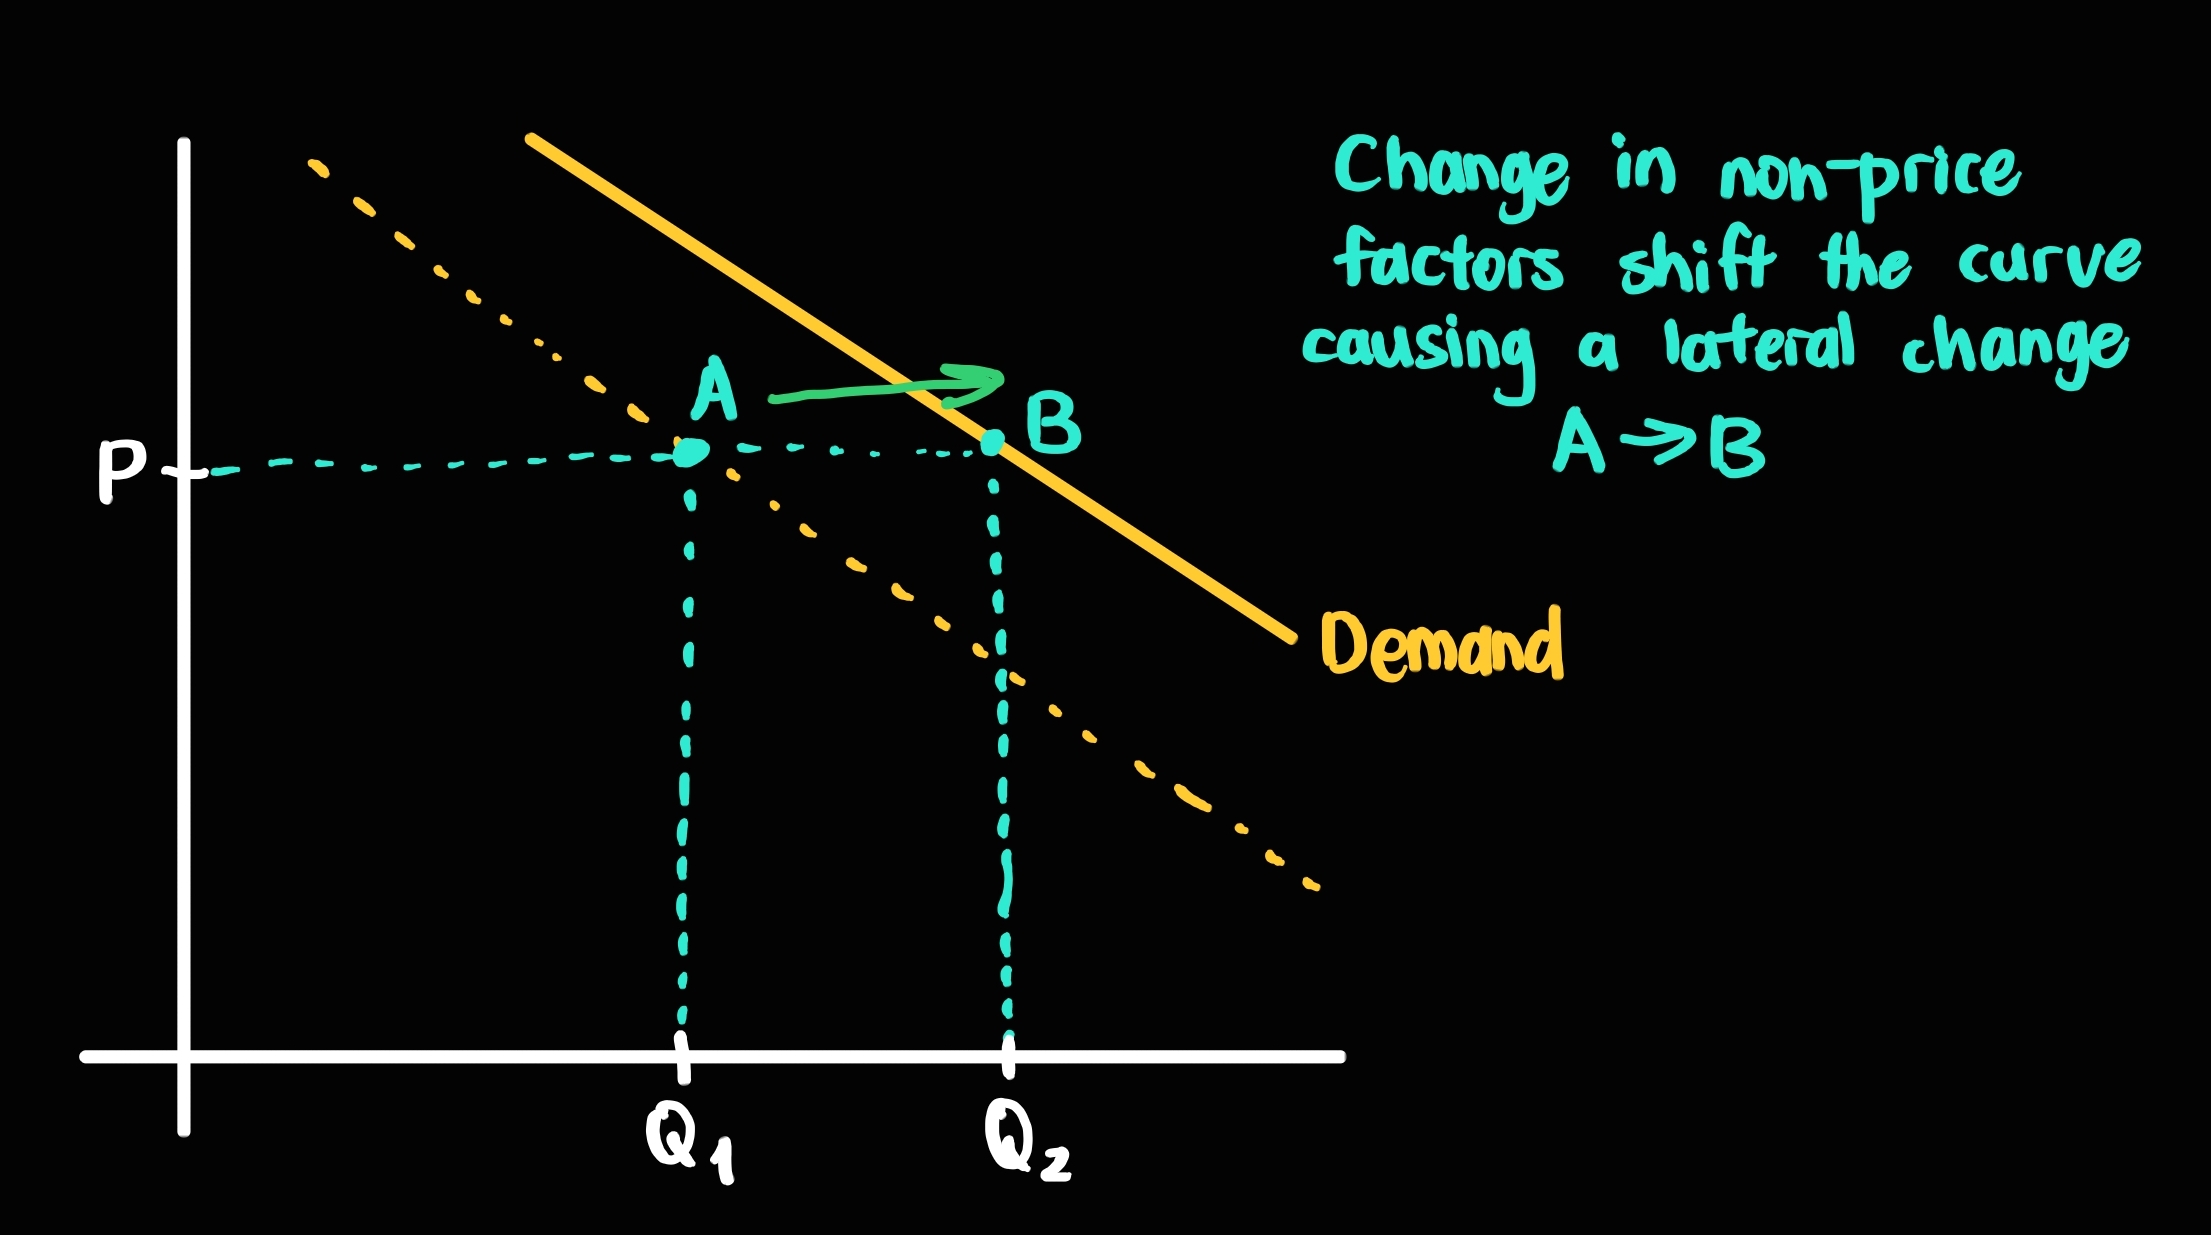 Change in non-price
factors shift the curve
causing a lateral change
A → B
A
B
P
Demand
Q1
Q2